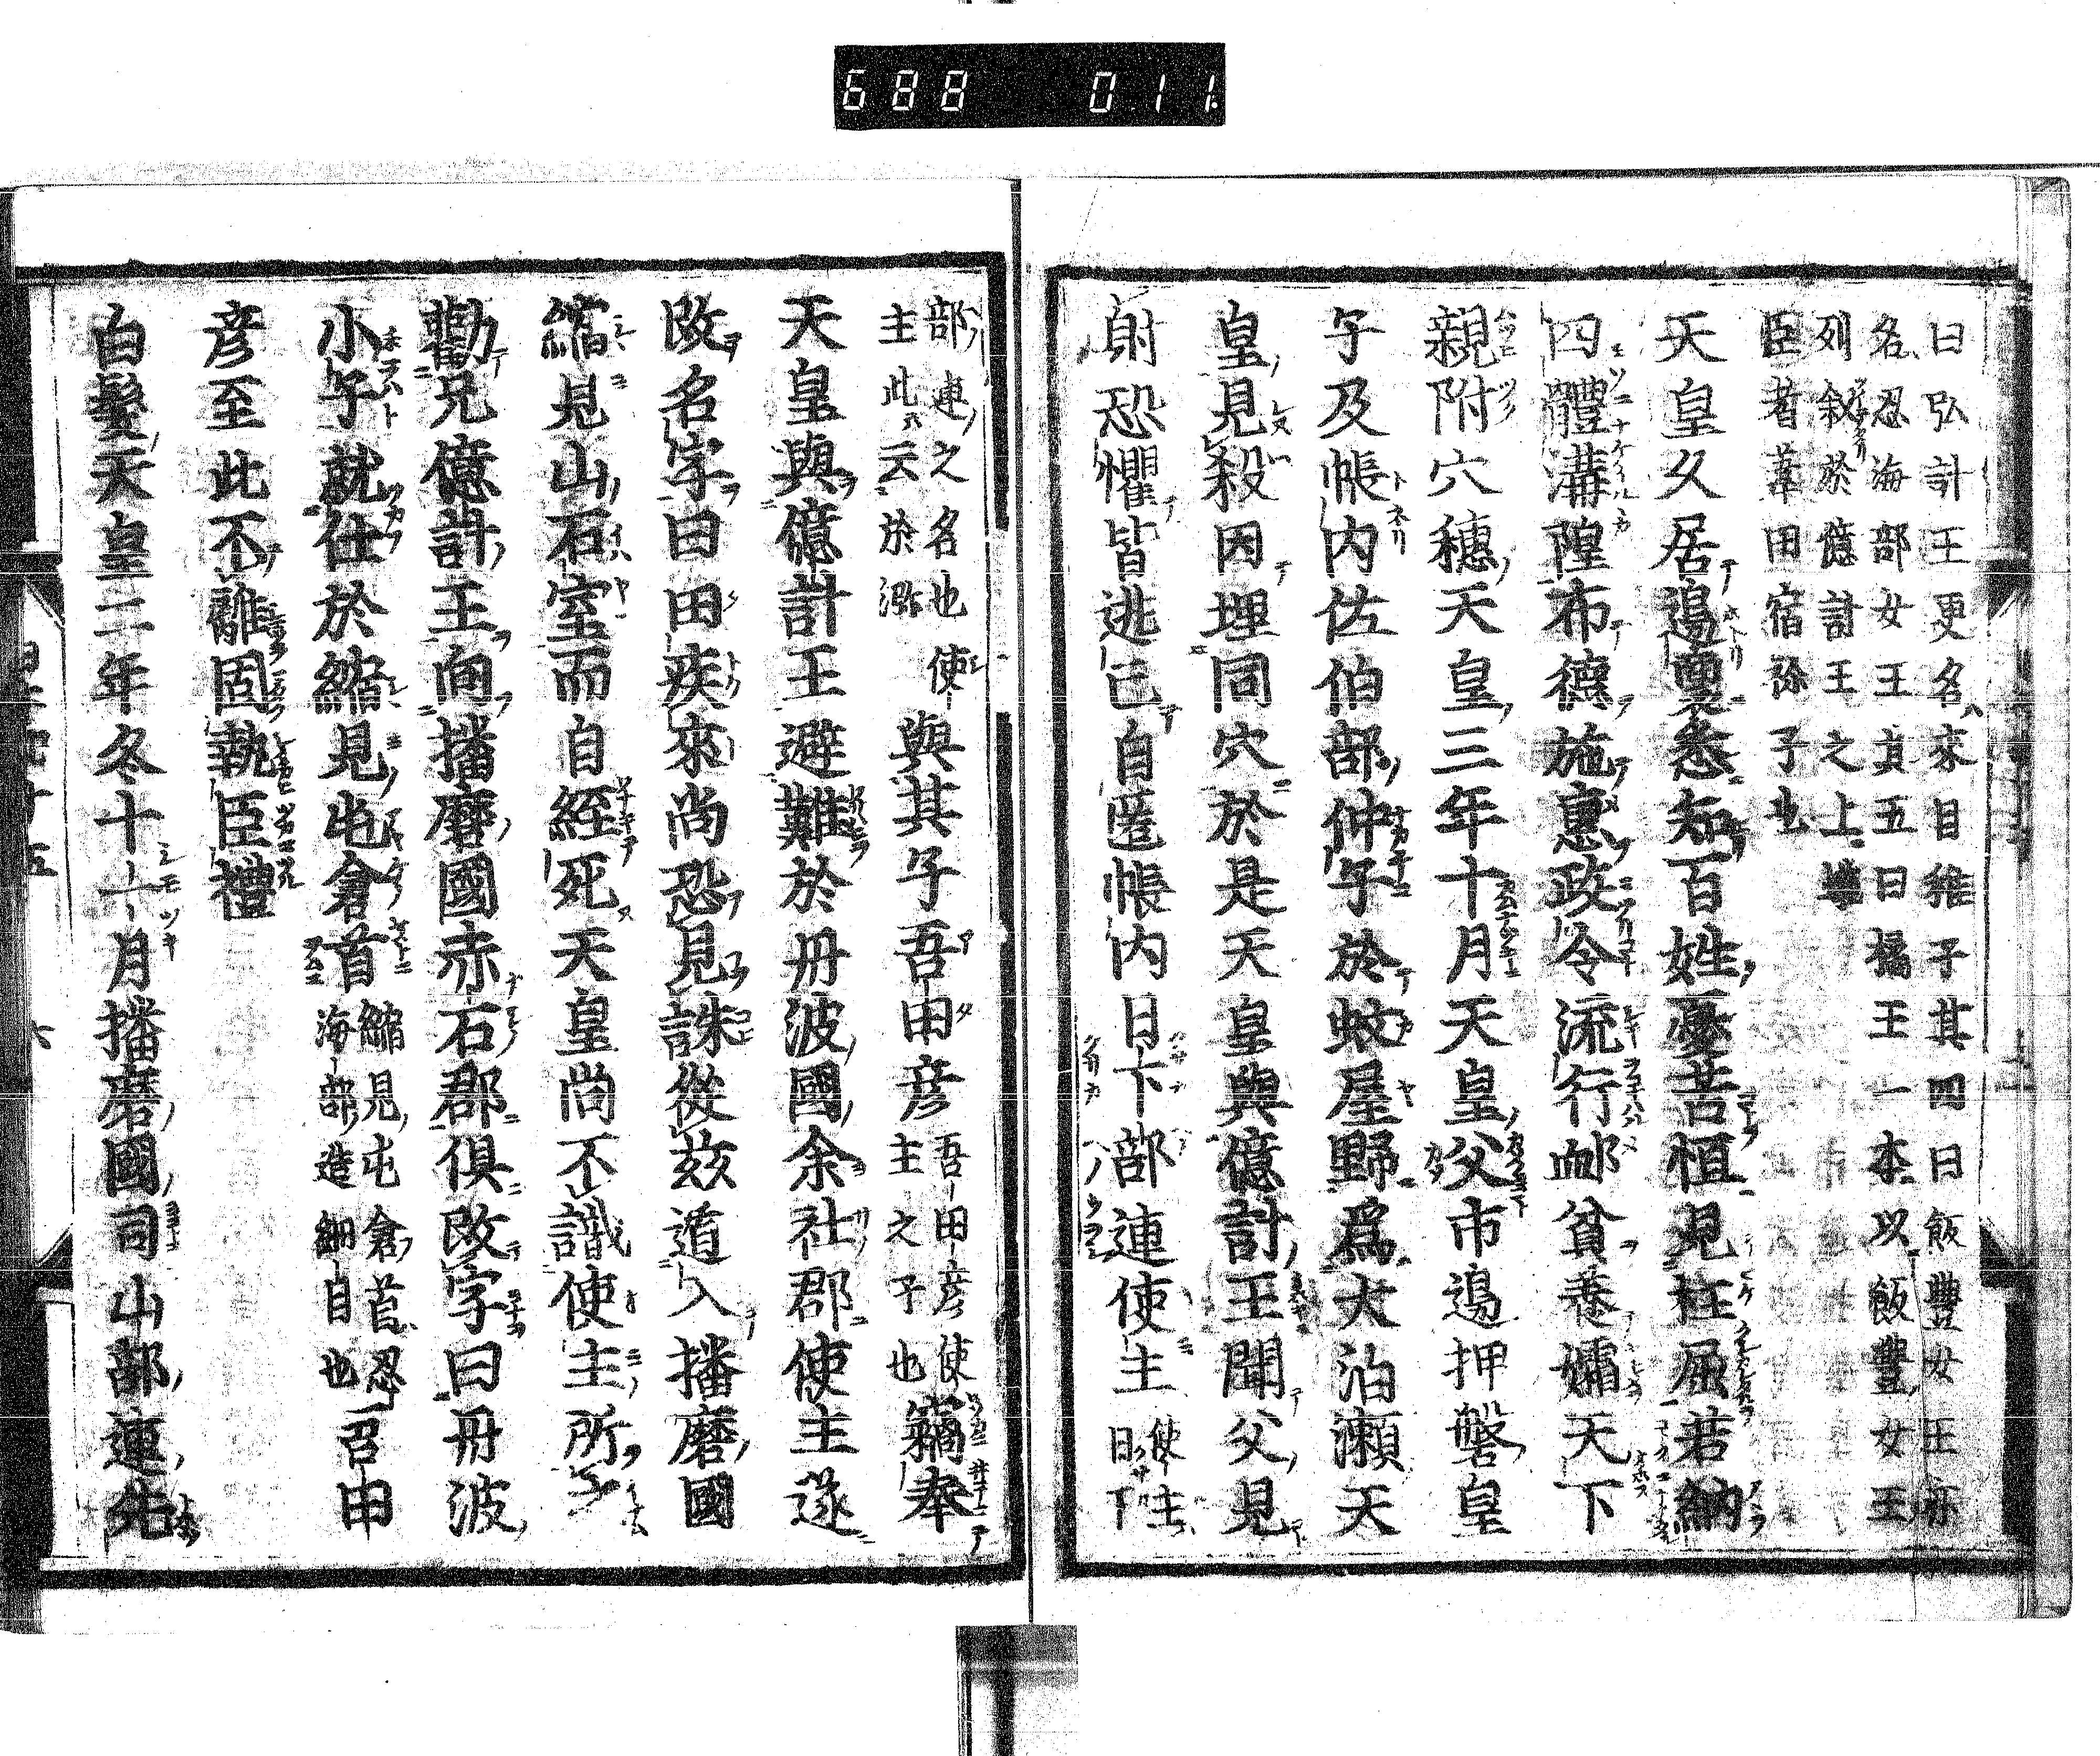 688 011
曰弘計王更名來目稚子其四曰飯豐女王亦
名忍海部女王其五曰橘王一本以飯豐女王
列叙於億計王之上
臣者葦田宿祢子也
天皇久居邊裏悉知百姓憂苦恒見枉屈若納
四體溝隍布德施惠政令流行䘏貧養孀天下
親附穴穗天皇三年十月天皇父市邊押磐皇
子及帳内佐伯部仲子於蚊屋野爲大泊瀬天
皇見殺因埋同穴於是天皇與億計王聞父見
射恐懼皆逃亡自匿帳内日下部連使主使主日下
部連之名也使主此云於瀰使與其子吾田彥吾田彥使主之子也竊奉
天皇與億計王避難於丹波國余社郡使主遂
改名字曰田疾來尚恐見誅從玆遁入播磨國
縮見山石室而自經死天皇尚不識使主所之
勸兄億計王向播磨國赤石郡俱改字曰丹波
小子就仕於縮見屯倉首縮見屯倉首忍海部造細目也吾田
彥至此不離固執臣禮
白髮天皇二年冬十一月播磨國司山部連先